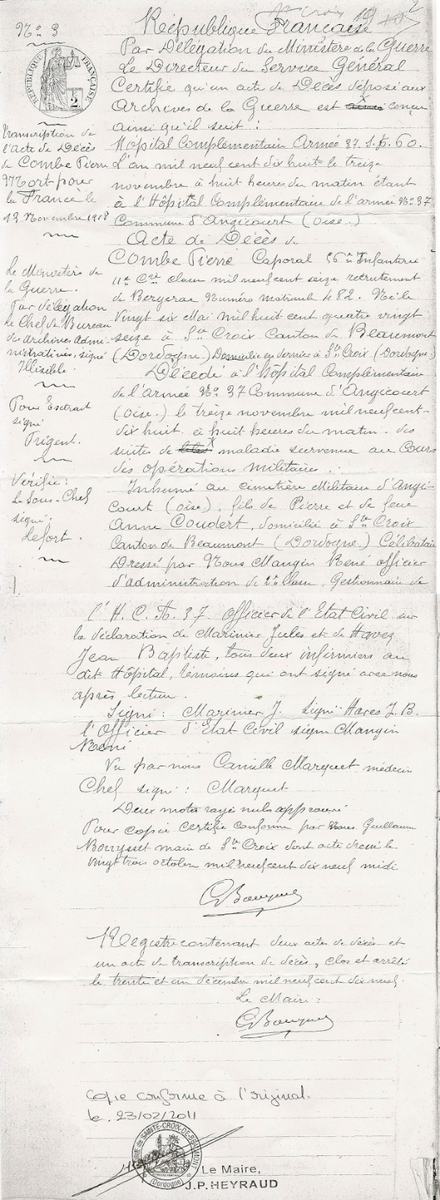 N° 3
RÉPUBLIQUE FRANÇAISE
2
Transcription de
l'acte de Décès
de Combe Pierre
Mort pour
la France le
13 Novembre 1918
Le Ministère de
la Guerre.
Par délégation
le Chef de Bureau
des Archives Admi-
nistratives, signé
Illisible.
Pour Extrait
signé
Trigent.
Vérifié:
Le Sous-Chef
signé:
Lefort.
République Française
Par Délégation du Ministère de la Guerre
Le Directeur du Service Général
Certifie qu'un acte de Décès déposé aux
Archives de la Guerre est conçu
ainsi qu'il suit:
Hôpital Complémentaire Armée 37. S.P. 60.
L'an mil neuf cent dix huit le treize
novembre à huit heures du matin étant
à l'Hôpital Complémentaire de l'armée N° 37
Commune d'Angicourt (Oise.)
Acte de Décès de
Combe Pierre Caporal Infanterie
11e Cie classe mil neuf cent seize recrutement
de Bergerac Numéro matricule 82. Né le
vingt six Mai mil huit cent quatre vingt
seize à Ste Croix Canton de Beaumont
(Dordogne) Domicilié en dernier à Ste Croix (Dordogne)
Décédé à l'hôpital Complémentaire
de l'Armée N° 37 Commune d'Angicourt
(Oise.) le treize novembre mil neuf cent-
dix huit à huit heures du matin. des
suites de maladie survenue au Cours
des opérations militaires.
Inhumé au cimetière Militaire d'Angi-
court (Oise), fils de Pierre et de feue
Anne Coudert, domicilié à Ste Croix
Canton de Beaumont (Dordogne) Célibataire
Dressé par Nous Mangin René officier
d'administration de 2e Classe, Gestionnaire de
l'H.C.A. 37 Officier de l'Etat Civil sur
la déclaration de Marinier Jules et de Haves
Jean Baptiste, tous deux infirmiers au
dit Hôpital, témoins qui ont signé avec nous
après lecture.
Signé: Marinier J. Signé Haves J. B.
l'Officier d'Etat Civil signé Mangin
René
Vu par nous Camille Marquet médecin
Chef signé: Marquet
Deux mots rayés nuls approuvé
Pour copie certifiée conforme par Nous Guillaume
Bouysset maire de Ste Croix dont acte dressé le
vingt trois octobre mil neuf cent dix neuf midi
Registre contenant deux actes de décès et
un acte de transcription de décès, clos et arrêté
le trente et un décembre mil neuf cent dix neuf.
Le Maire:
copie conforme à l'original.
le 23/02/2011
Le Maire,
J.P. HEYRAUD